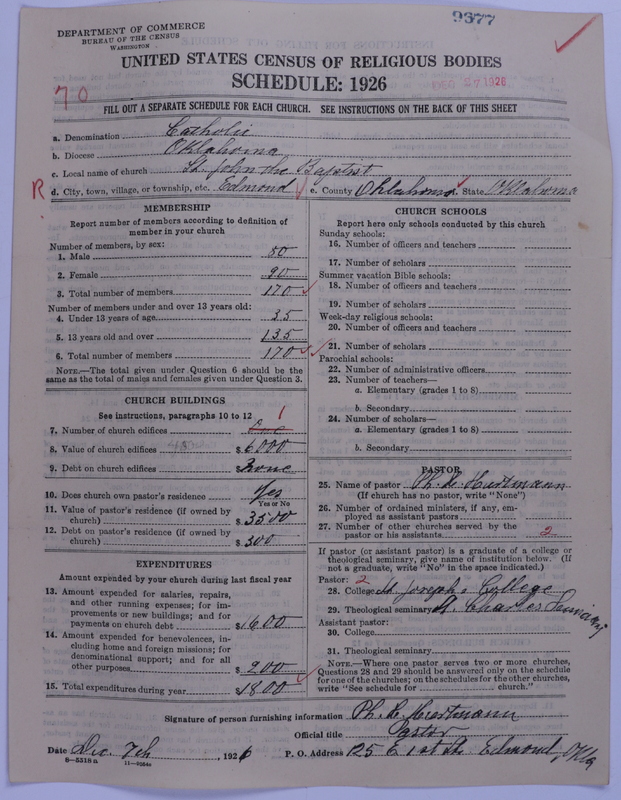 DEPARTMENT OF COMMERCE
BUREAU OF THE CENSUS
WASHINGTON
9377
UNITED STATES CENSUS OF RELIGIOUS BODIES
SCHEDULE: 1926
DEC 27 1926
70
FILL OUT A SEPARATE SCHEDULE FOR EACH CHURCH. SEE INSTRUCTIONS ON THE BACK OF THIS SHEET
a. Denomination Catholic
b. Diocese Oklahoma
c. Local name of church St. John the Baptist
R d. City, town, village, or township, etc. Edmond e. County Oklahoma f. State Oklahoma
MEMBERSHIP
Report number of members according to definition of
member in your church
Number of members, by sex:
1. Male 80
2. Female 90
3. Total number of members 170
Number of members under and over 13 years old:
4. Under 13 years of age 35
5. 13 years old and over 135
6. Total number of members 170
NOTE.—The total given under Question 6 should be
the same as the total of males and females given under Question 3.
CHURCH BUILDINGS
See instructions, paragraphs 10 to 12
1
7. Number of church edifices One
8. Value of church edifices $ 6000
9. Debt on church edifices $ None
10. Does church own pastor's residence Yes
Yes or No
11. Value of pastor's residence (if owned by
church) $ 3500
12. Debt on pastor's residence (if owned by
church) $ 300
EXPENDITURES
Amount expended by your church during last fiscal year
13. Amount expended for salaries, repairs,
and other running expenses; for im-
provements or new buildings; and for
payments on church debt $ 1600
14. Amount expended for benevolences, in-
cluding home and foreign missions; for
denominational support; and for all
other purposes $ 200
15. Total expenditures during year $ 1800
CHURCH SCHOOLS
Report here only schools conducted by this church
Sunday schools:
16. Number of officers and teachers
17. Number of scholars
Summer vacation Bible schools:
18. Number of officers and teachers
19. Number of scholars
Week-day religious schools:
20. Number of officers and teachers
21. Number of scholars
Parochial schools:
22. Number of administrative officers
23. Number of teachers—
a. Elementary (grades 1 to 8)
b. Secondary
24. Number of scholars—
a. Elementary (grades 1 to 8)
b. Secondary
PASTOR
25. Name of pastor Ph. L. Hurtmann
(If church has no pastor, write "None")
26. Number of ordained ministers, if any, em-
ployed as assistant pastors
27. Number of other churches served by the
pastor or his assistants 2
If pastor (or assistant pastor) is a graduate of a college or
theological seminary, give name of institution below. (If
not a graduate, write "No" in the space indicated.)
Pastor: 2
28. College St. Josephs College
29. Theological seminary St. Charles Seminary
Assistant pastor:
30. College
31. Theological seminary
NOTE.—Where one pastor serves two or more churches,
Questions 28 and 29 should be answered only on the schedule
for one of the churches; on the schedules for the other churches,
write "See schedule for church."
Signature of person furnishing information Ph. L. Hurtmann
Official title Pastor
Date Dec. 7th, 1926 P. O. Address 125 E 1st St. Edmond, Okla
8-5318a 11-9264